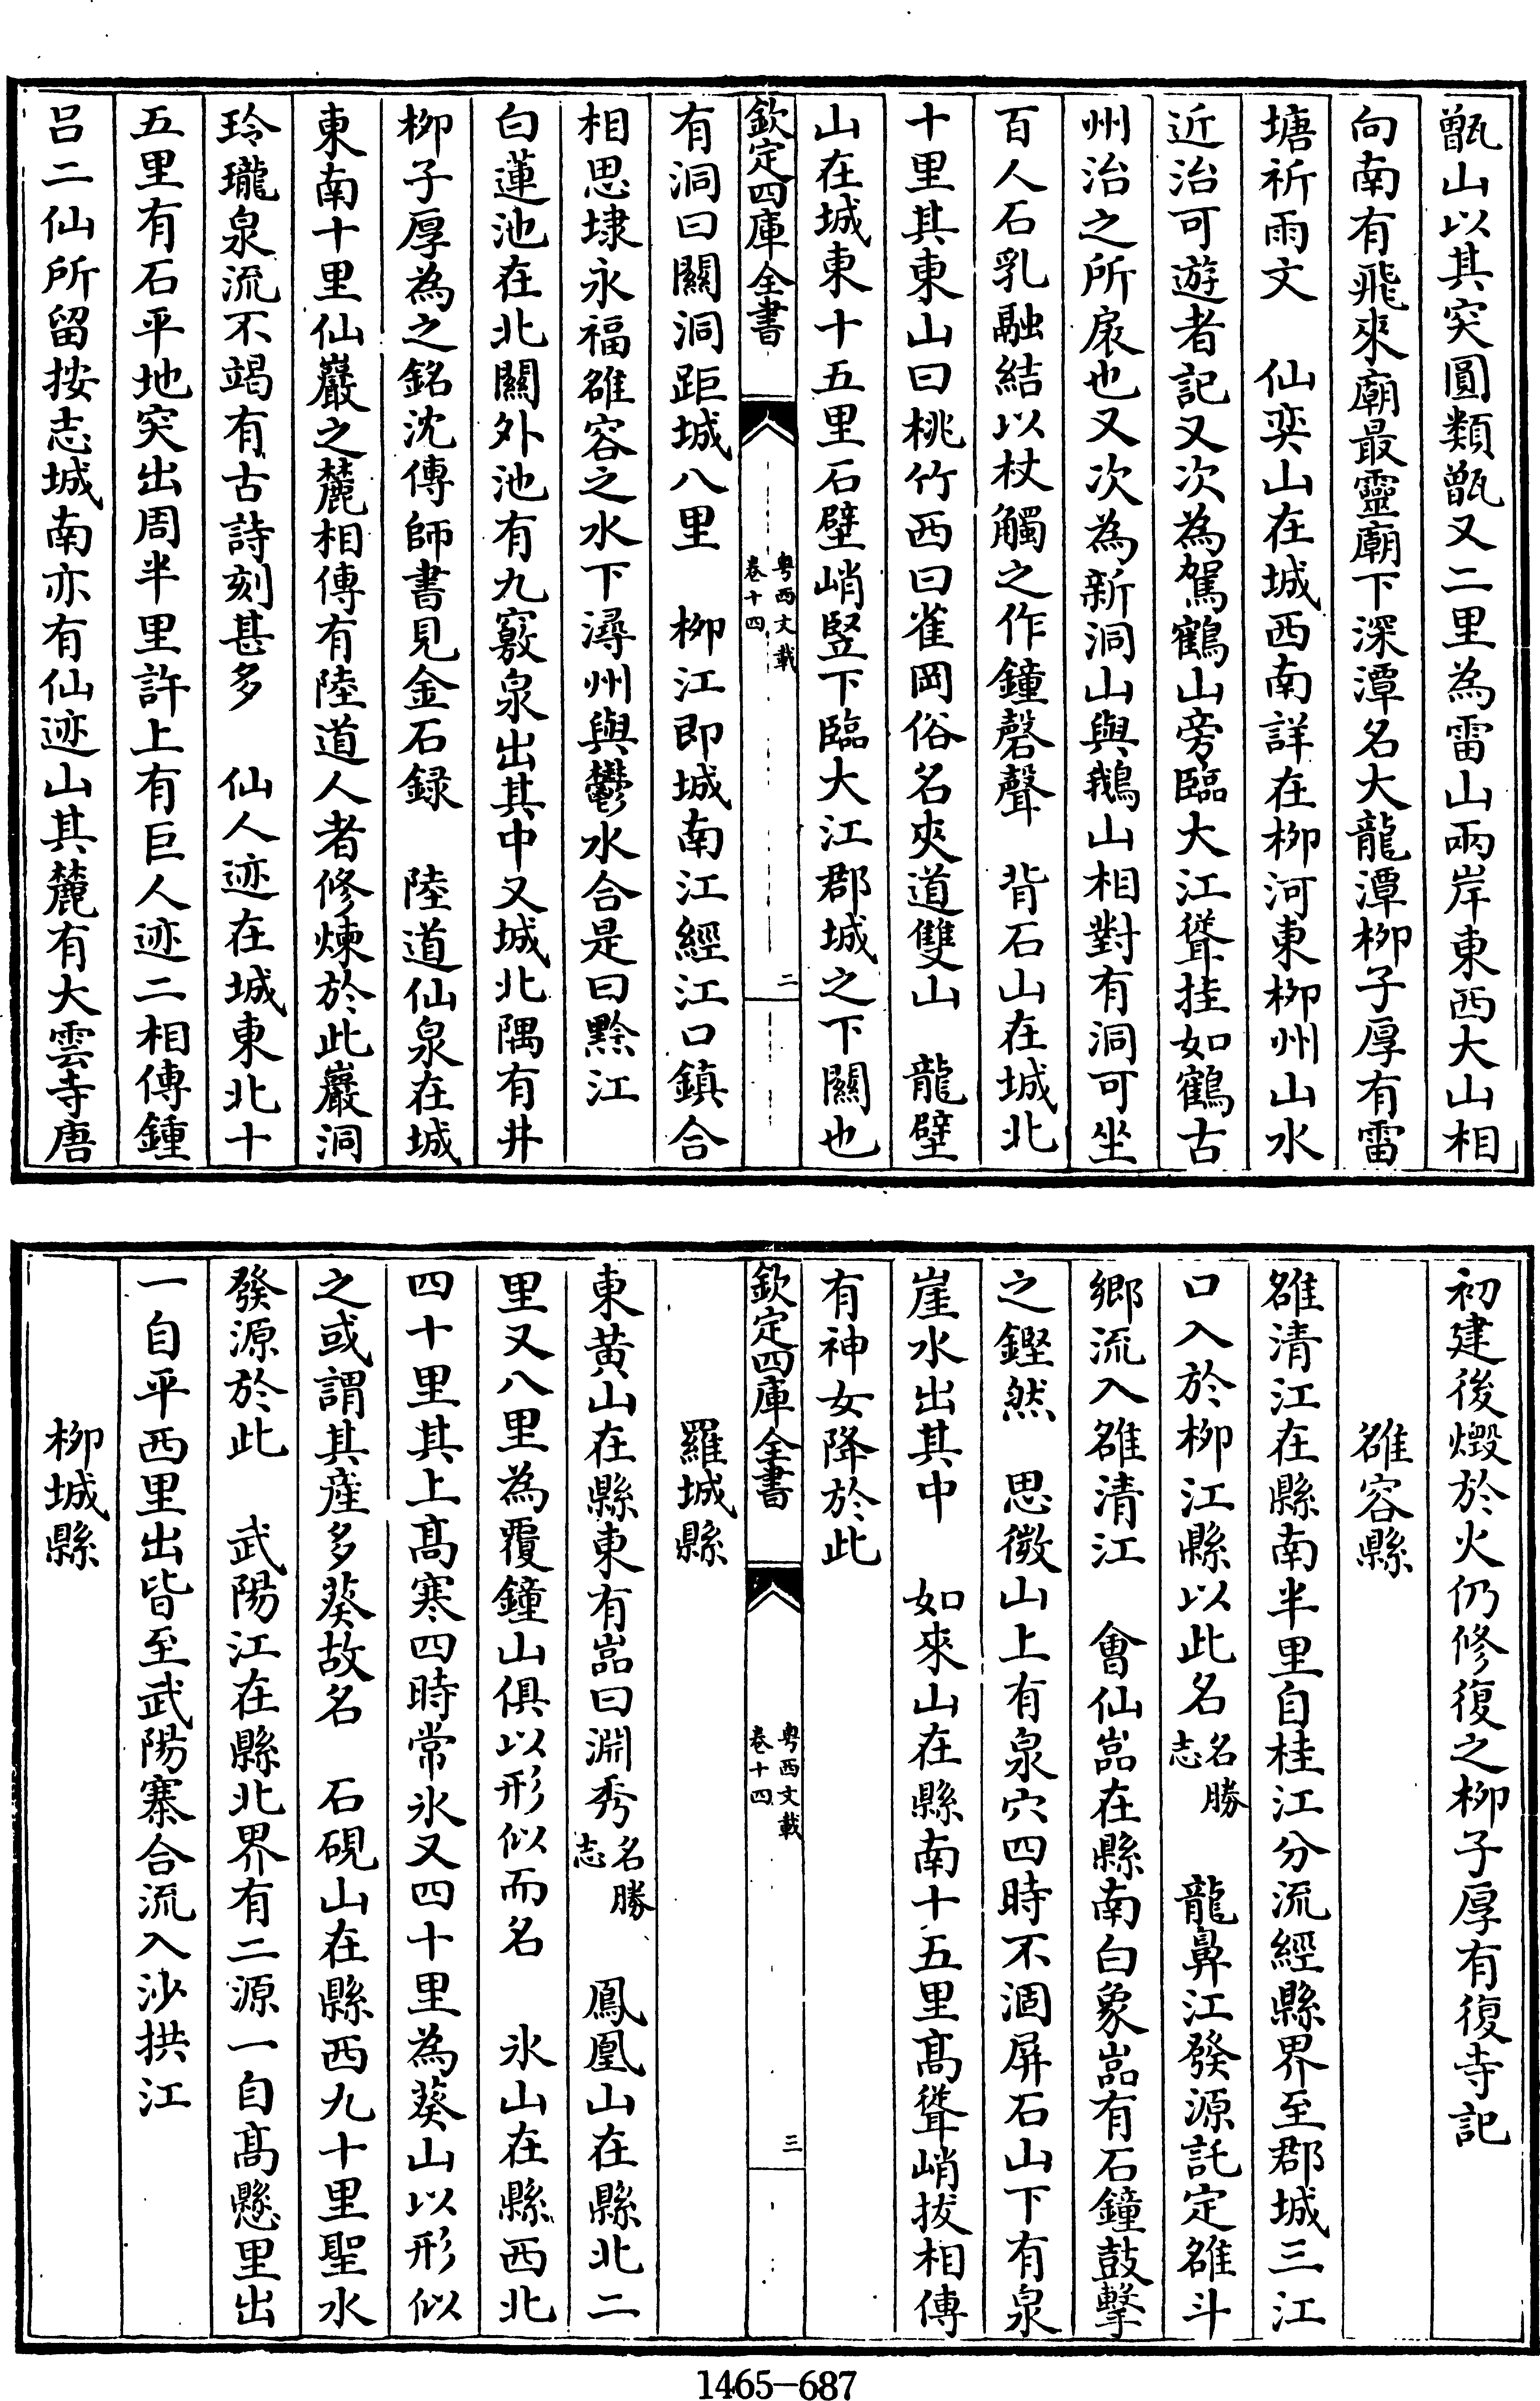 甑山以其突圓類甑又二里為雷山兩岸東西大山相
向南有飛來廟最靈廟下深潭名大龍潭柳子厚有雷
塘祈雨文　仙奕山在城西南詳在柳河東柳州山水
近治可遊者記又次為駕鶴山旁臨大江聳挂如鶴古
州治之所扆也又次為新洞山與鵝山相對有洞可坐
百人石乳融結以杖觸之作鐘磬聲　背石山在城北
十里其東山曰桃竹西曰雀岡俗名夾道雙山　龍壁
山在城東十五里石壁峭竪下臨大江郡城之下關也
欽定四庫全書
粤西文載
卷十四
二
有洞曰關洞距城八里　柳江即城南江經江口鎮合
相思埭永福雒容之水下潯州與鬱水合是曰黔江
白蓮池在北關外池有九竅泉出其中又城北隅有井
柳子厚為之銘沈傳師書見金石録　陸道仙泉在城
東南十里仙巖之麓相傳有陸道人者修煉於此巖洞
玲瓏泉流不竭有古詩刻甚多　仙人迹在城東北十
五里有石平地突出周半里許上有巨人迹二相傳鍾
吕二仙所留按志城南亦有仙迹山其麓有大雲寺唐
初建後燬於火仍修復之柳子厚有復寺記
雒容縣
雒清江在縣南半里自桂江分流經縣界至郡城三江
口入於柳江縣以此名名勝志　龍鼻江發源託定雒斗
鄉流入雒清江　會仙嵓在縣南白象嵓有石鐘鼓擊
之鏗然　思微山上有泉穴四時不涸屏石山下有泉
崖水出其中　如來山在縣南十五里髙聳峭拔相傳
有神女降於此
欽定四庫全書
粤西文載
卷十四
三
羅城縣
東黄山在縣東有嵓曰淵秀名勝志　鳳凰山在縣北二
里又八里為覆鐘山俱以形似而名　氷山在縣西北
四十里其上髙寒四時常氷又四十里為葵山以形似
之或謂其産多葵故名　石硯山在縣西九十里聖水
發源於此　武陽江在縣北界有二源一自髙懸里出
一自平西里出皆至武陽寨合流入沙拱江
柳城縣
1465-687